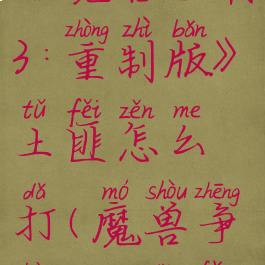 zhòng zhì bǎn
3:重制版》
tǔ fěi zěn me
土匪怎么
dǎ mó shòu zhēng
打(魔兽争